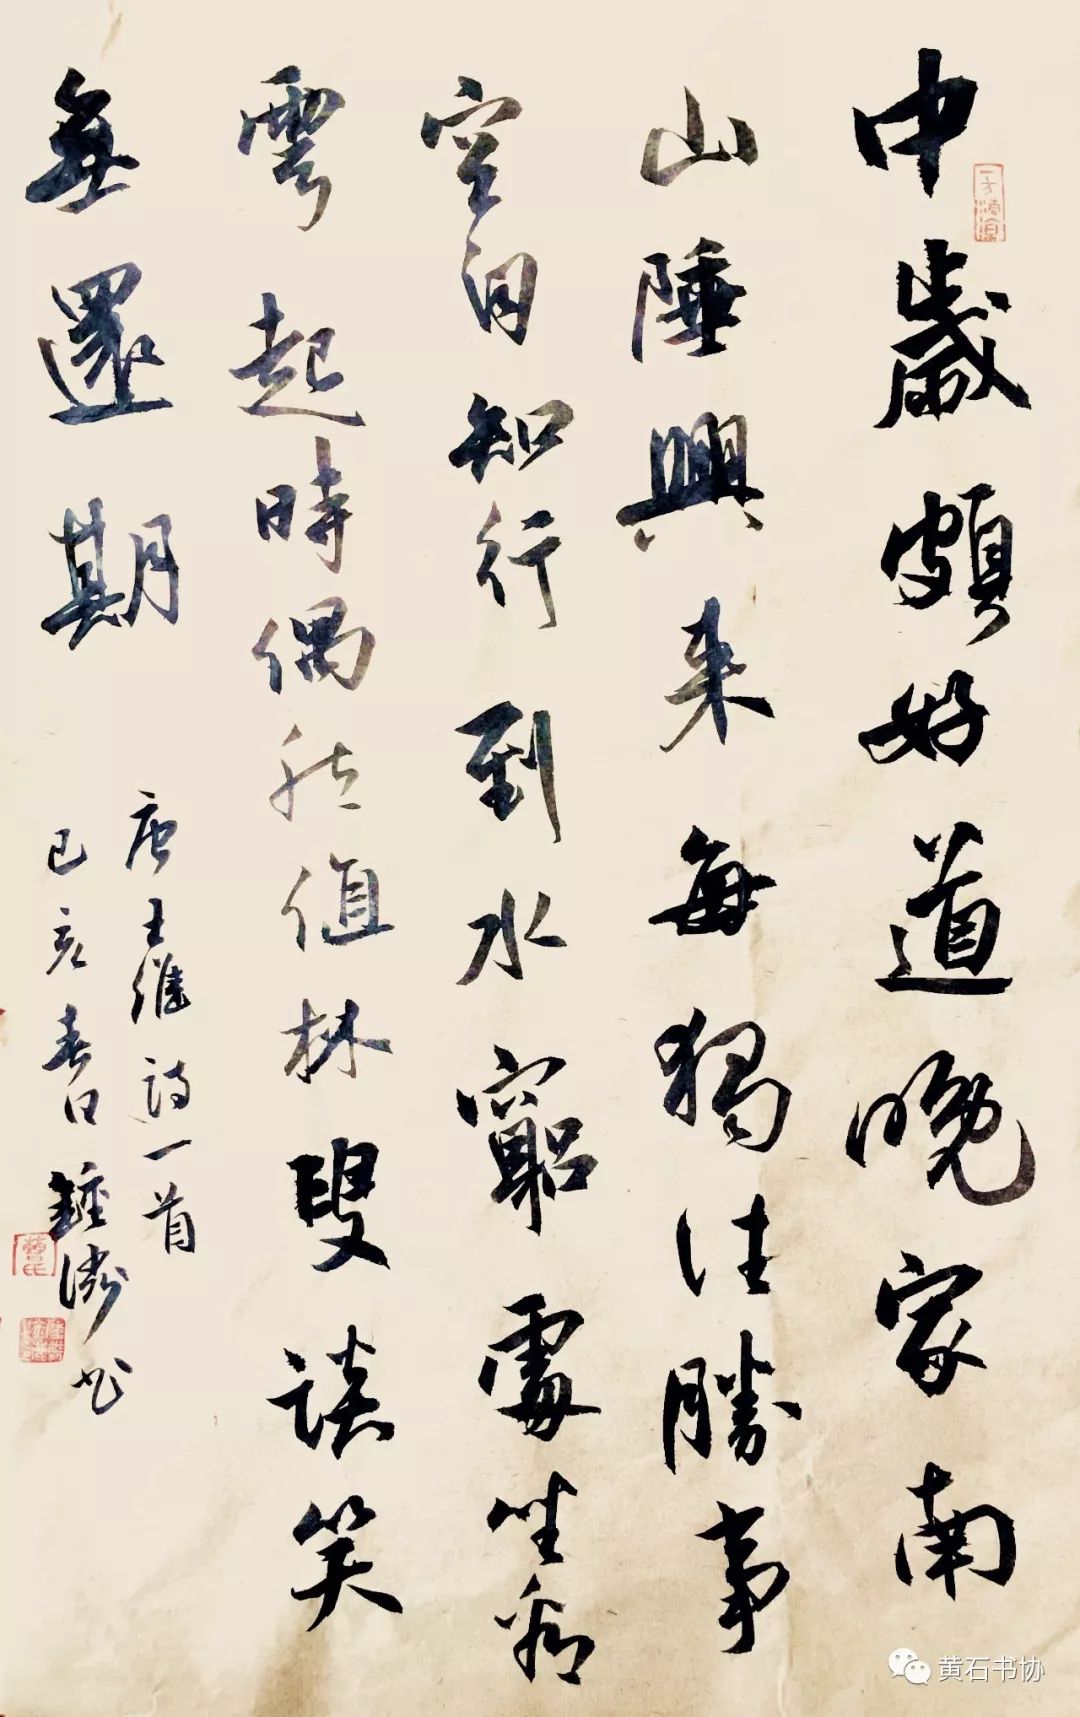 中歲頗好道晚家南
山陲興来每獨往勝事
空自知行到水窮處坐看
雲起時偶然值林叟談笑
無還期
唐王維詩一首
己亥春日鍾濤书
黄石书协